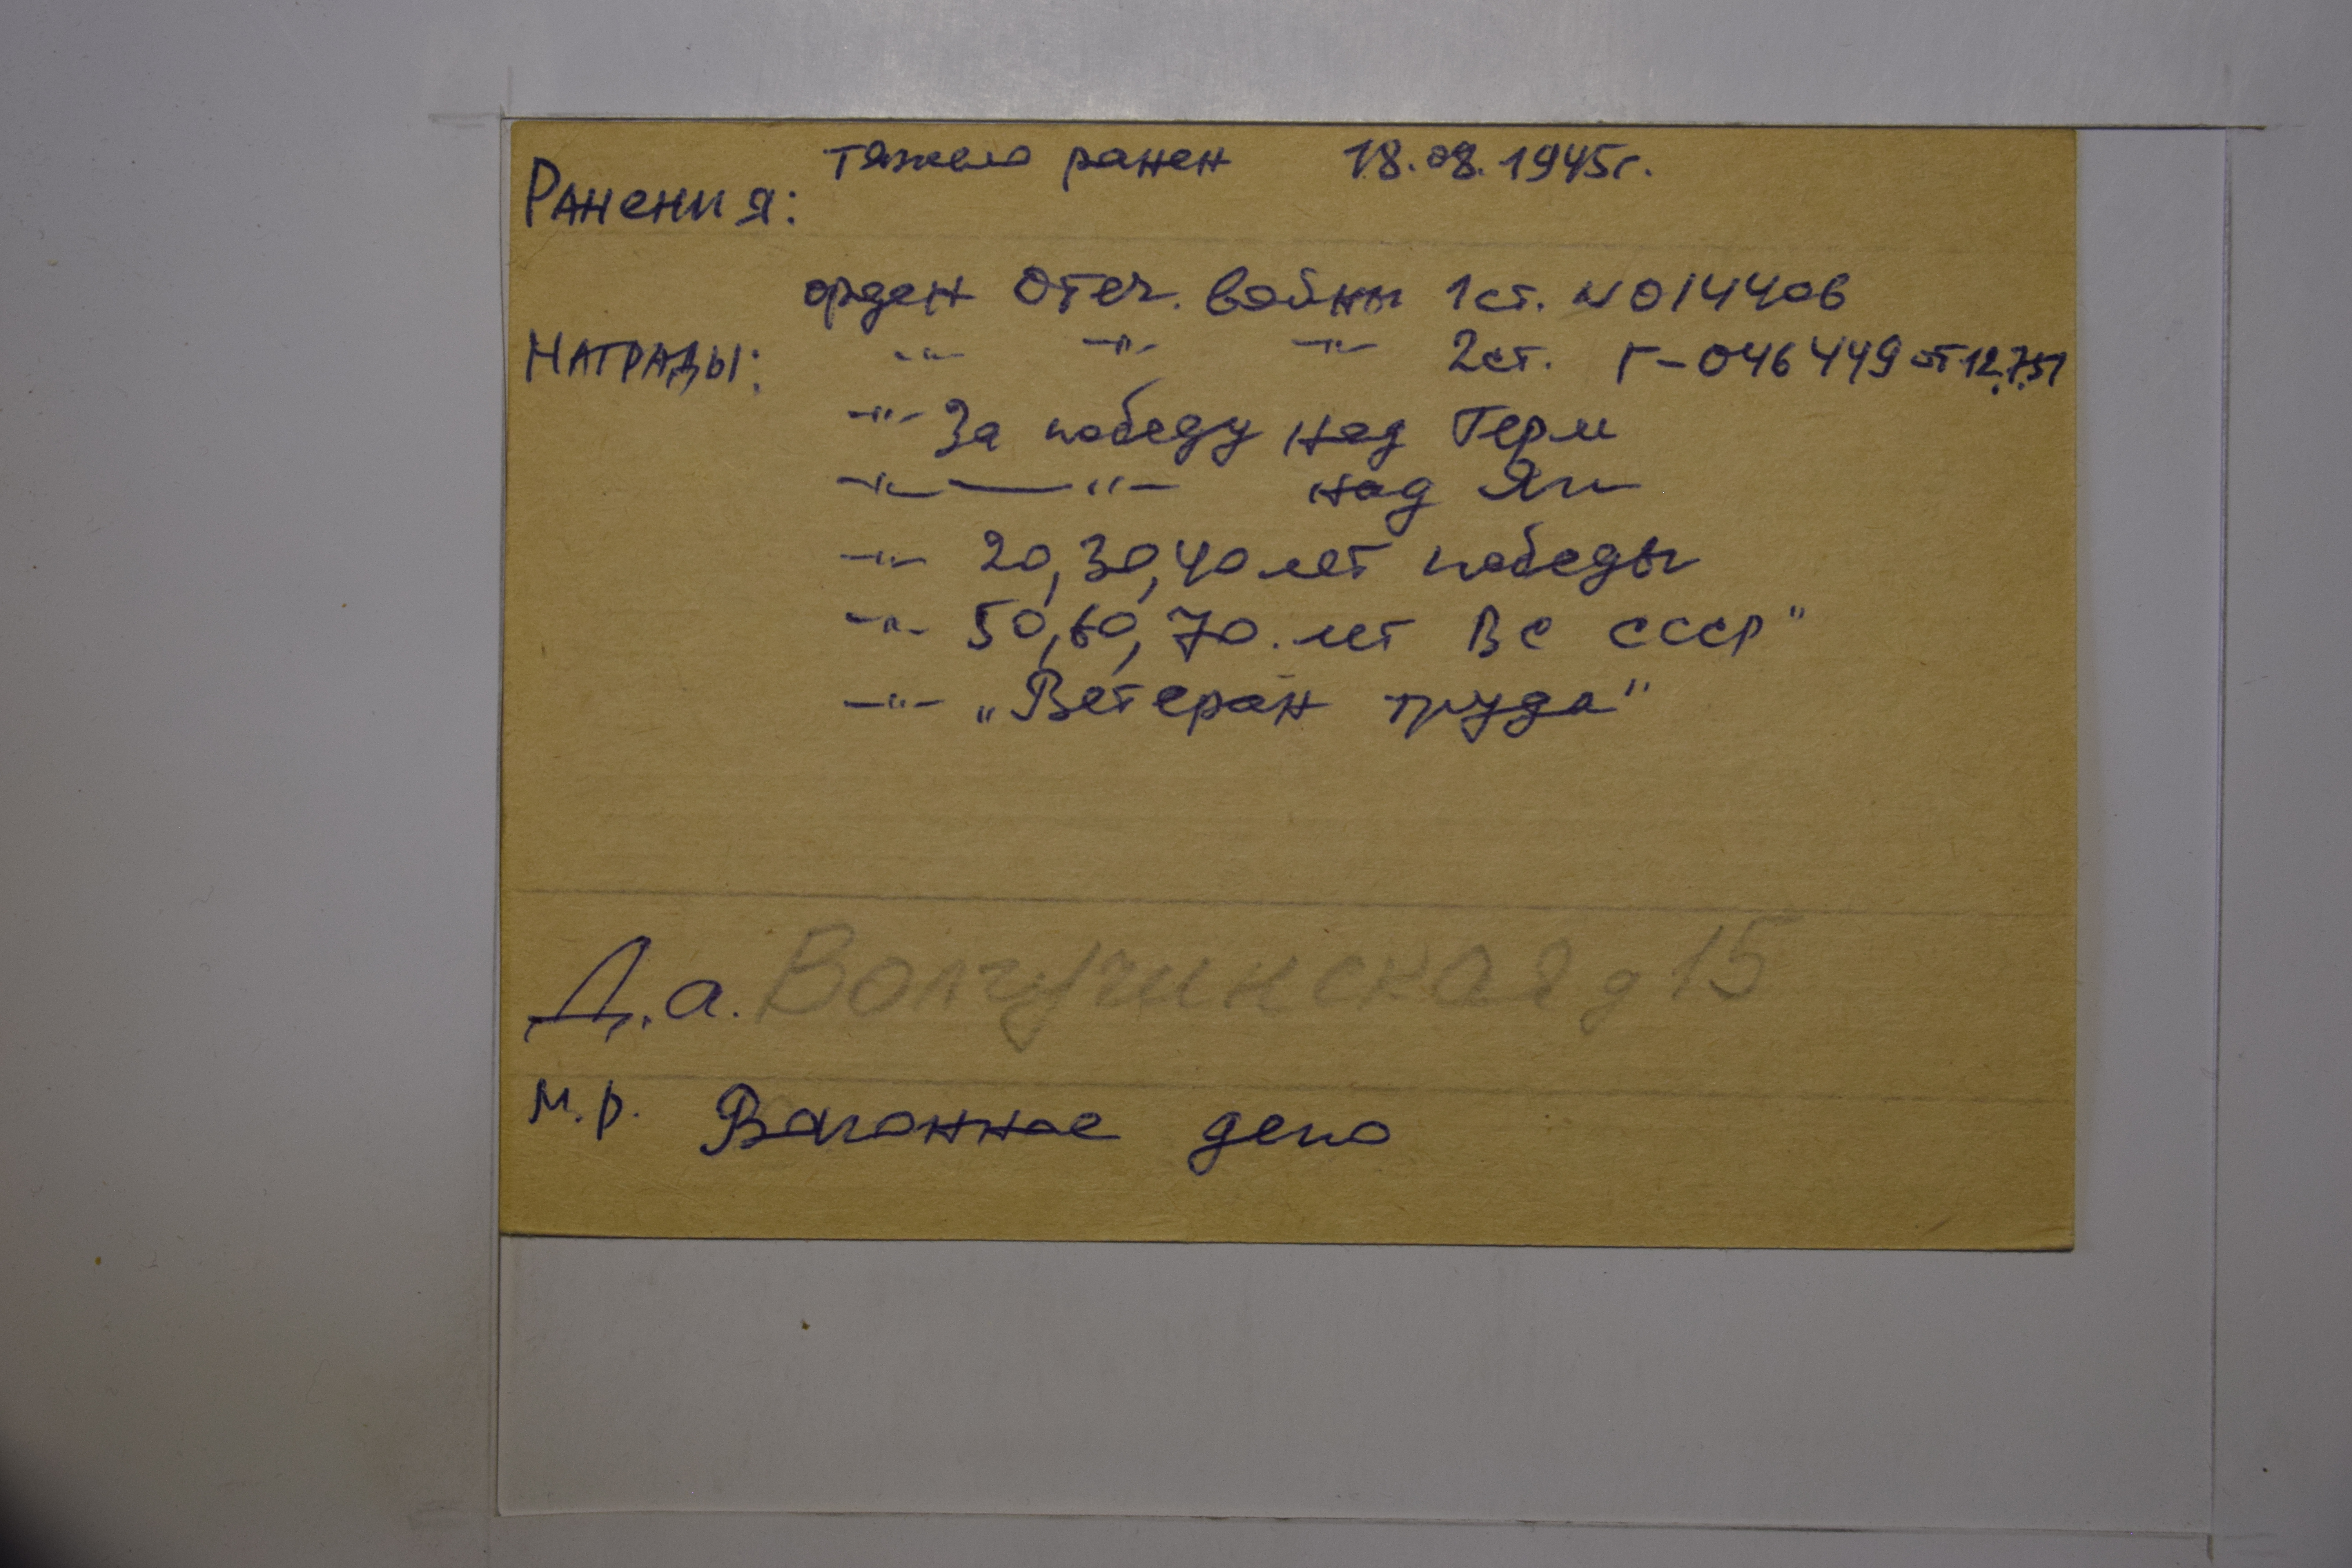 Ранения: тяжело ранен 18.08.1945г.
орден Отеч. войны 1 ст. № 014406
Награды: -"- -"- -"- 2 ст. Г-046449 от 12.7.51
-"- За победу над Герм
-"- -"- над Яп
-"- 20, 30, 40 лет победы
-"- 50, 60, 70. лет ВС СССР"
-"- „Ветеран труда"
Д.а. Волгучинская д 15
М.р. Вагонное депо